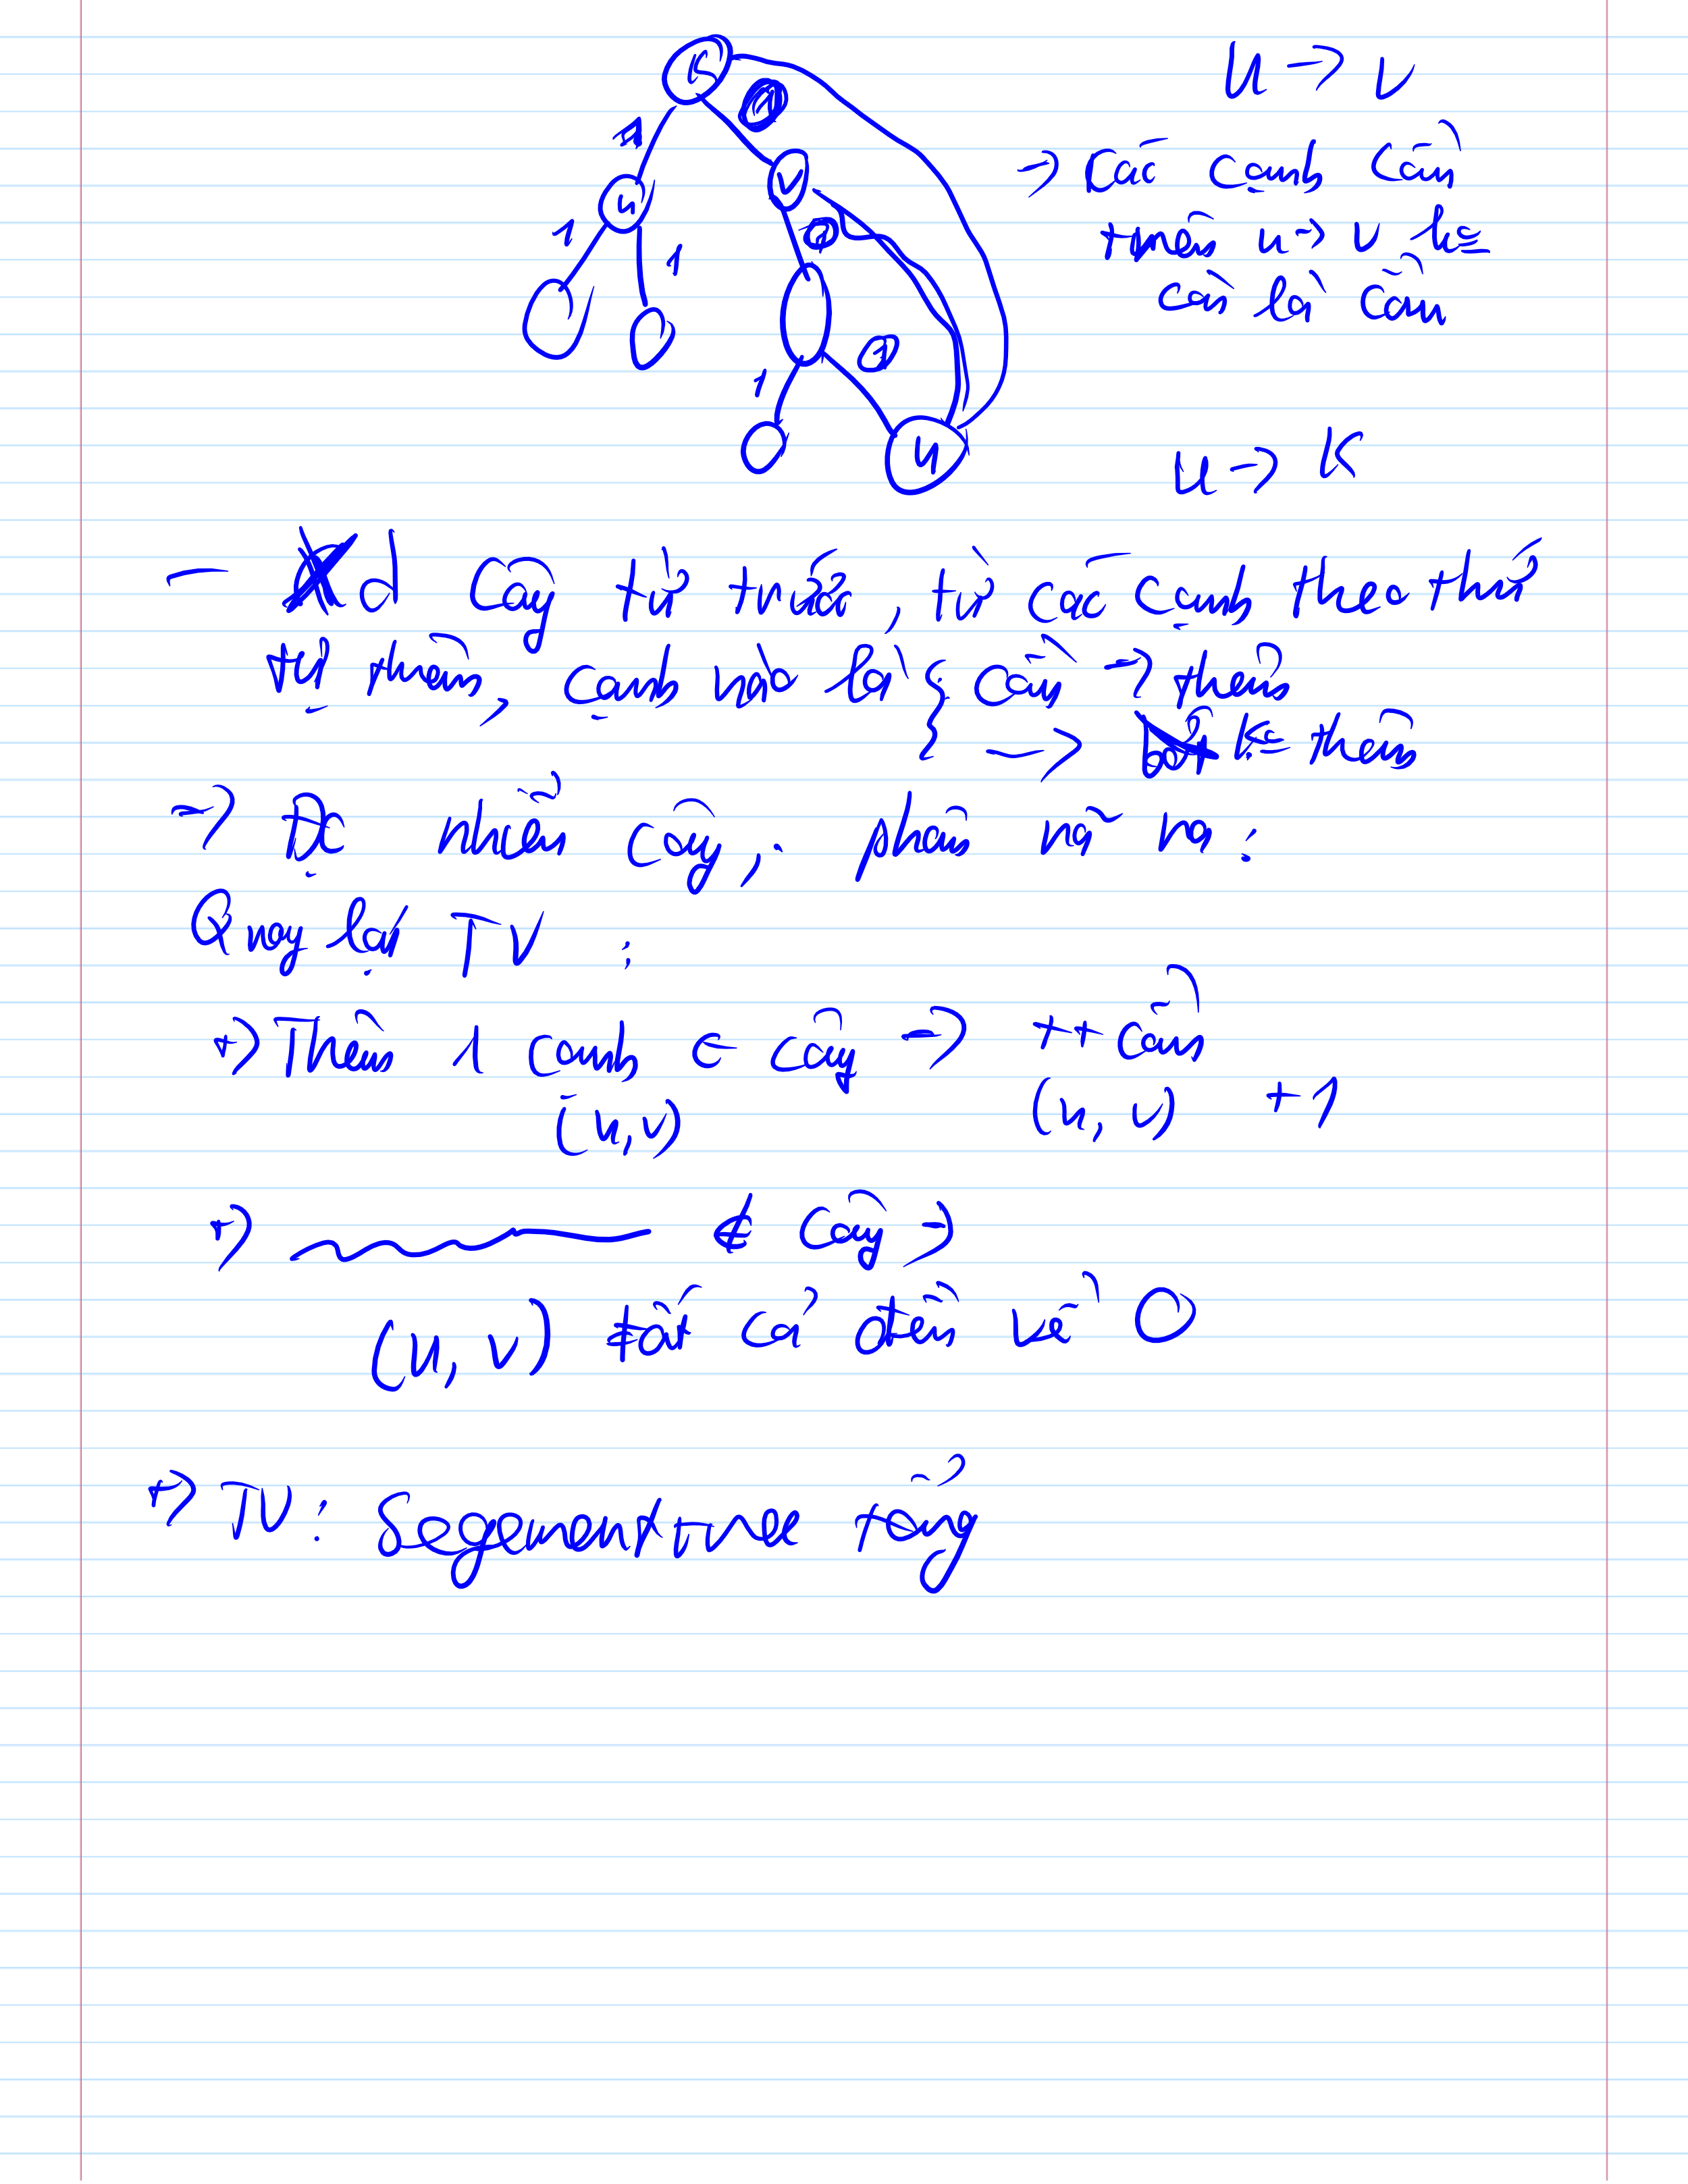 K
1
1
u
v
1
1
1
1
1
u
u → v
→ các cạnh cần
trên u → v k
còn là cầu
u → K
- d cây từ trước, từ các cạnh theo thứ
tự thêm, cạnh nào là { cầu → thêm
→ k thêm
→ Đc nhiều cây, phân rã ra:
Quay lại TV:
+) Thêm 1 cạnh ∈ cây → ++ cầu
(u,v) (u,v) +1
+) ∉ cây →
(u,v) tất cả đến về 0
+) TV: Segement tree tổng